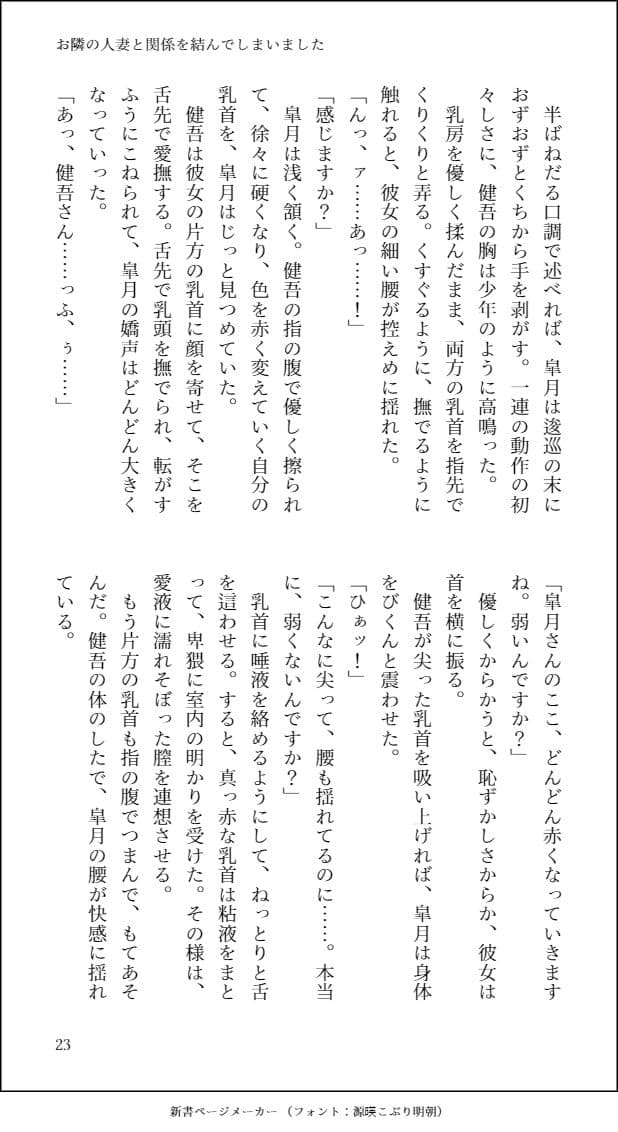 お隣の人妻と関係を結んでしまいました
　半ばねだる口調で述べれば、皐月は逡巡の末に
おずおずとくちから手を剥がす。一連の動作の初
々しさに、健吾の胸は少年のように高鳴った。
　乳房を優しく揉んだまま、両方の乳首を指先で
くりくりと弄る。くすぐるように、撫でるように
触れると、彼女の細い腰が控えめに揺れた。
「んっ、ァ……あっ……！」
「感じますか？」
　皐月は浅く頷く。健吾の指の腹で優しく擦られ
て、徐々に硬くなり、色を赤く変えていく自分の
乳首を、皐月はじっと見つめていた。
　健吾は彼女の片方の乳首に顔を寄せて、そこを
舌先で愛撫する。舌先で乳頭を撫でられ、転がす
ふうにこねられて、皐月の嬌声はどんどん大きく
なっていった。
「あっ、健吾さん……っふ、ぅ……」
「皐月さんのここ、どんどん赤くなっていきます
ね。弱いんですか？」
　優しくからかうと、恥ずかしさからか、彼女は
首を横に振る。
　健吾が尖った乳首を吸い上げれば、皐月は身体
をびくんと震わせた。
「ひぁッ！」
「こんなに尖って、腰も揺れてるのに……。本当
に、弱くないんですか？」
　乳首に唾液を絡めるようにして、ねっとりと舌
を這わせる。すると、真っ赤な乳首は粘液をまと
って、卑猥に室内の明かりを受けた。その様は、
愛液に濡れそぼった膣を連想させる。
　もう片方の乳首も指の腹でつまんで、もてあそ
んだ。健吾の体のしたで、皐月の腰が快感に揺れ
ている。
23
新書ページメーカー（フォント：源暎こぶり明朝）